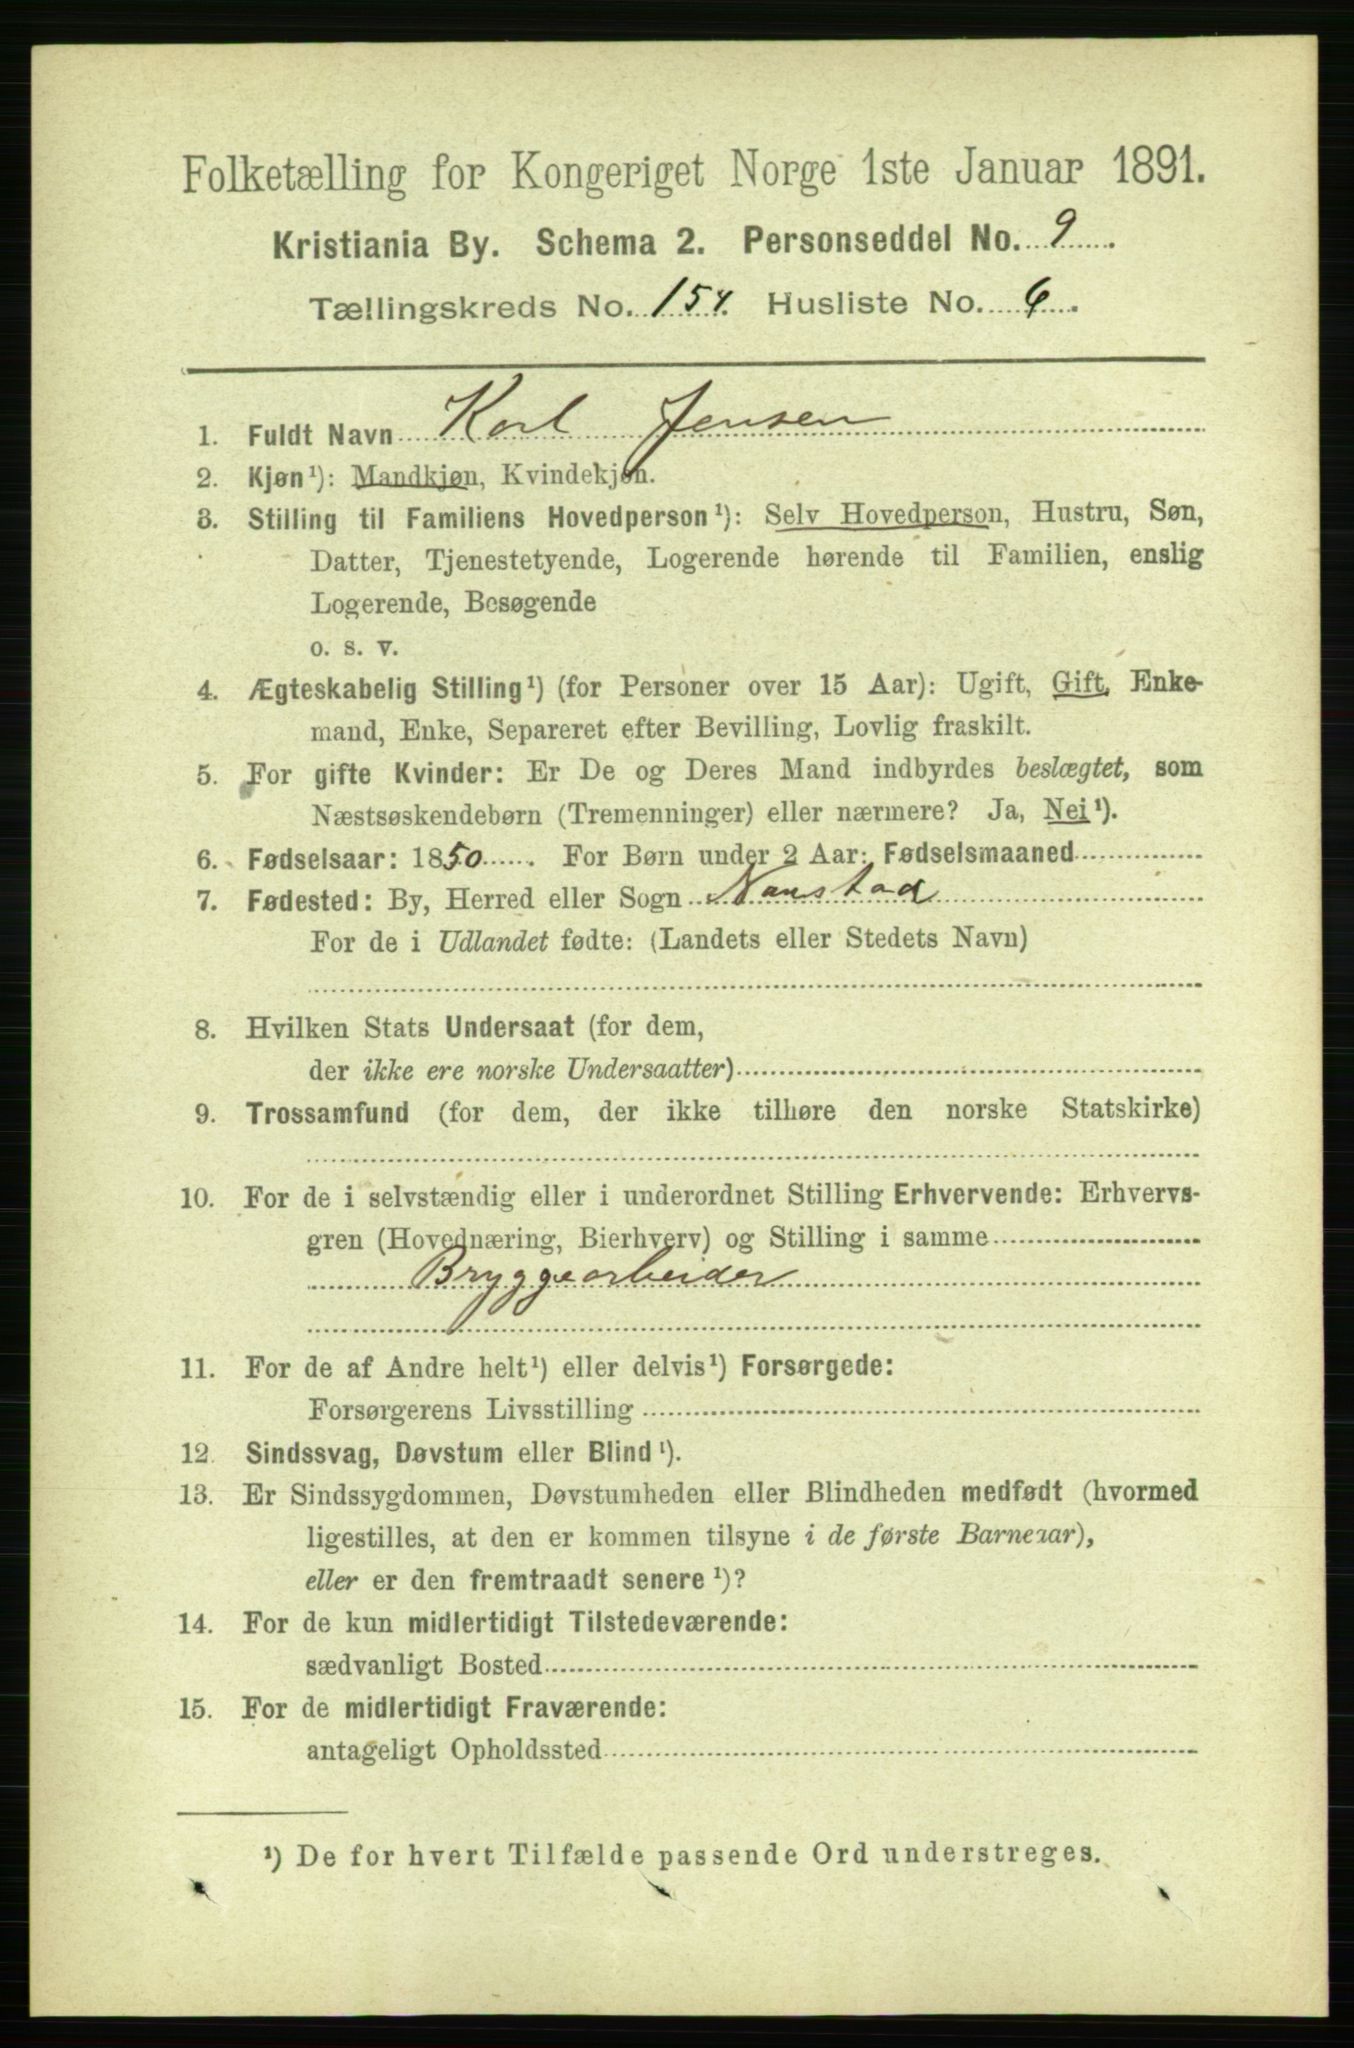 Folketælling for Kongeriget Norge 1ste Januar 1891.
Kristiania By. Schema 2. Personseddel No. 9.
Tællingskreds No. 154. Husliste No. 6.
1. Fuldt Navn Karl Jensen
2. Kjøn¹): Mandkjøn, Kvindekjøn.
3. Stilling til Familiens Hovedperson¹): Selv Hovedperson, Hustru, Søn,
Datter, Tjenestetyende, Logerende hørende til Familien, enslig
Logerende, Besøgende
o. s. v.
4. Ægteskabelig Stilling¹) (for Personer over 15 Aar): Ugift, Gift, Enke-
mand, Enke, Separeret efter Bevilling, Lovlig fraskilt.
5. For gifte Kvinder: Er De og Deres Mand indbyrdes beslægtet, som
Næstsøskendebørn (Tremenninger) eller nærmere? Ja, Nei¹).
6. Fødselsaar: 1850. For Børn under 2 Aar: Fødselsmaaned
7. Fødested: By, Herred eller Sogn Nanstad
For de i Udlandet fødte: (Landets eller Stedets Navn)
8. Hvilken Stats Undersaat (for dem,
der ikke ere norske Undersaatter)
9. Trossamfund (for dem, der ikke tilhøre den norske Statskirke)
10. For de i selvstændig eller i underordnet Stilling Erhvervende: Erhvervs-
gren (Hovednæring, Bierhverv) og Stilling i samme
Bryggearbeider
11. For de af Andre helt¹) eller delvis¹) Forsørgede:
Forsørgerens Livsstilling
12. Sindssvag, Døvstum eller Blind¹).
13. Er Sindssygdommen, Døvstumheden eller Blindheden medfødt (hvormed
ligestilles, at den er kommen tilsyne i de første Barneaar),
eller er den fremtraadt senere¹)?
14. For de kun midlertidigt Tilstedeværende:
sædvanligt Bosted
15. For de midlertidigt Fraværende:
antageligt Opholdssted
¹) De for hvert Tilfælde passende Ord understreges.